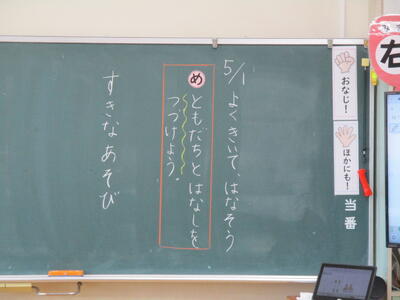 右
おなじ！
ほかにも！
当番
5/1
よくきいて、はなそう
め
ともだちとはなしを
つづけよう。
すきなあそび